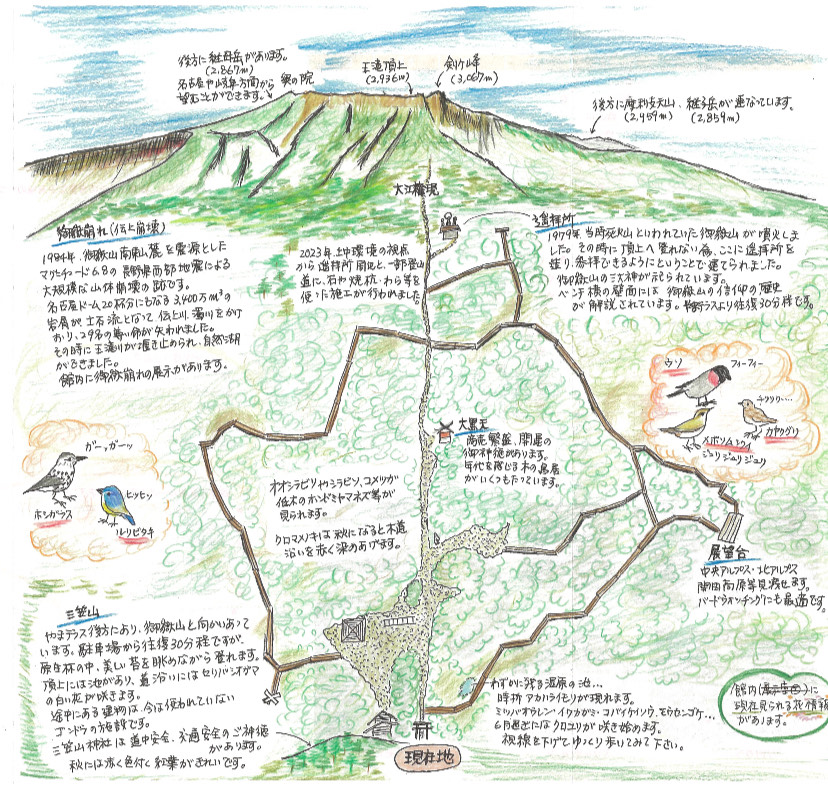 後方に継母岳があります。
(2,867m)
名古屋や岐阜方面から
望むことができます。
奥の院
王滝頂上
(2,936m)
剣ヶ峰
(3,067m)
後方に摩利支天山、継子岳が連なっています。
(2,959m) (2,859m)
大江権現
御嶽崩れ(伝上崩壊)
1984年、御嶽山南東山麓を震源とした
マグニチュード6.8の長野県西部地震による
大規模な山体崩壊の跡です。
名古屋ドーム20杯分にもなる3,400万m³の
岩屑が土石流となって伝上川、濁川をかけ
おり、29名の尊い命が失われました。
その時に王滝川が堰き止められ、自然湖
ができました。
館内に御嶽崩れの展示があります。
2023年、土中環境の視点
から遥拝所周辺と一部登山
道に、石や焼杭・わら等を
使った施工が行われました
遥拝所
1979年当時死火山といわれていた御嶽山が噴火しま
した。その時に頂上へ登れない為、ここに遥拝所を
造り、参拝できるようにということで建てられました。
御嶽山の三大神が祀られています。
ベンチ横の壁面には御嶽山の信仰の歴史
が解説されています。やまテラスより往復30分程です。
ウソ
フィーフィー
チリリリ…
カヤクグリ
メボソムシクイ
ジュリジュリジュリ
ガーッガーッ
ホシガラス
ヒッヒッ
ルリビタキ
大黒天
商売繁盛、開運の
御神徳があります。
年代を感じる木の鳥居
がいくつもたっています。
オオシラビソやシラビソ、コメツガ
低木のホンドミヤマネズ等が
見られます。
クロマメノキは秋になると木道
沿いを赤く染めあげます。
展望台
中央アルプス・北アルプス
開田高原等見渡せます。
バードウォッチングにも最適です。
三笠山
やまテラス後方にあり、御嶽山と向かいあって
います。駐車場から往復30分程ですが、
原生林の中、美しい苔を眺めながら登れます。
頂上には池があり、道沿いにはセリバシオガマ
の白い花が咲きます。
途中にある建物は、今は使われていない
ゴンドラの施設です。
三笠山神社は道中安全、交通安全のご神徳
があります。
秋には赤く色付く紅葉がきれいです。
わずかに残る湿原の池…
時折アカハライモリが現れます。
ミツバオウレン・イワカガミ・コバイケイソウ、モウセンゴケ…
6月過ぎにはクロユリが咲き始めます。
視線を下げてゆっくり歩いてみて下さい。
館内(展示室)に
現在見られる花情報
があります。
現在地